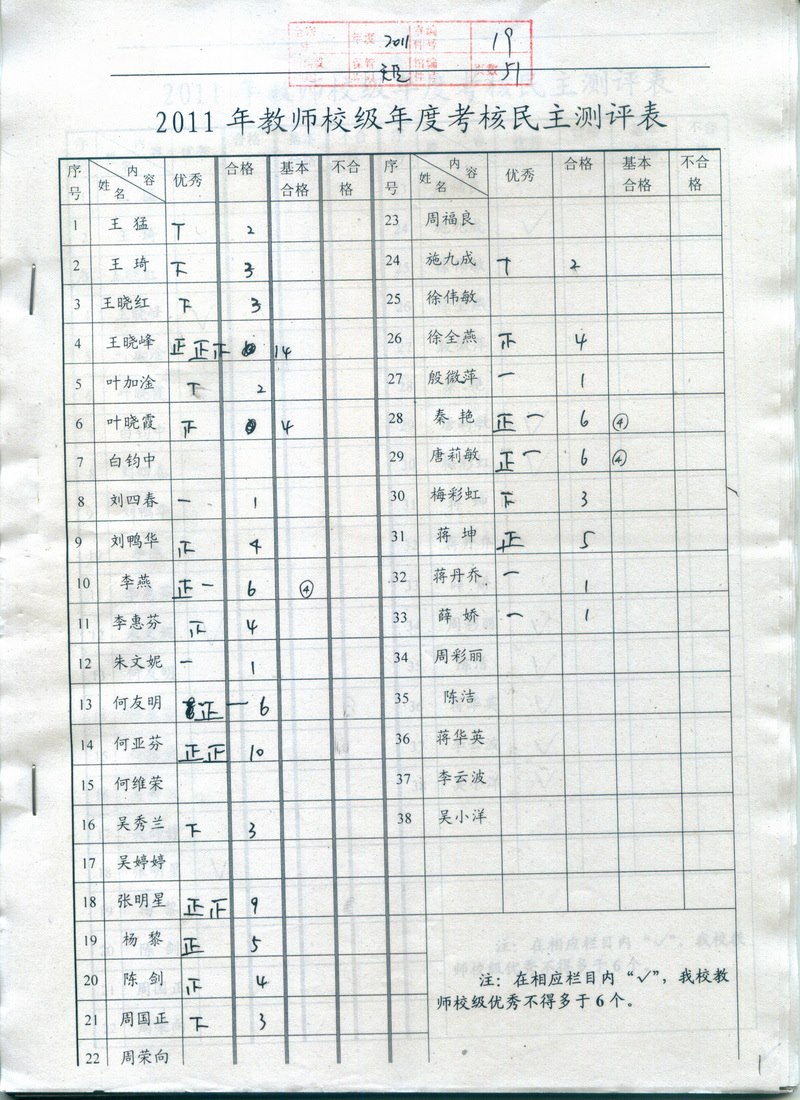 年度 2011 19
页数 51
2011年教师校级年度考核民主测评表
序号 内容 姓名 优秀 合格 基本合格 不合格
1 王猛 2
2 王琦 3
3 王晓红 3
4 王晓峰 正正 14
5 叶加淦 2
6 叶晓霞 4
7 白钧中
8 刘四春 一 1
9 刘鸭华 4
10 李燕 正一 6 ④
11 李惠芬 4
12 朱文妮 一 1
13 何友明 正一 6
14 何亚芬 正正 10
15 何维荣
16 吴秀兰 3
17 吴婷婷
18 张明星 正 9
19 杨黎 正 5
20 陈剑 4
21 周国正 3
22 周荣向
序号 内容 姓名 优秀 合格 基本合格 不合格
23 周福良
24 施九成 2
25 徐伟敏
26 徐全燕 4
27 殷微萍 一 1
28 秦艳 正一 6 ④
29 唐莉敏 正一 6 ④
30 梅彩虹 3
31 蒋坤 正 5
32 蒋丹乔 一 1
33 薛娇 一 1
34 周彩丽
35 陈洁
36 蒋华英
37 李云波
38 吴小洋
注：在相应栏目内“✓”，我校教
师校级优秀不得多于6个。